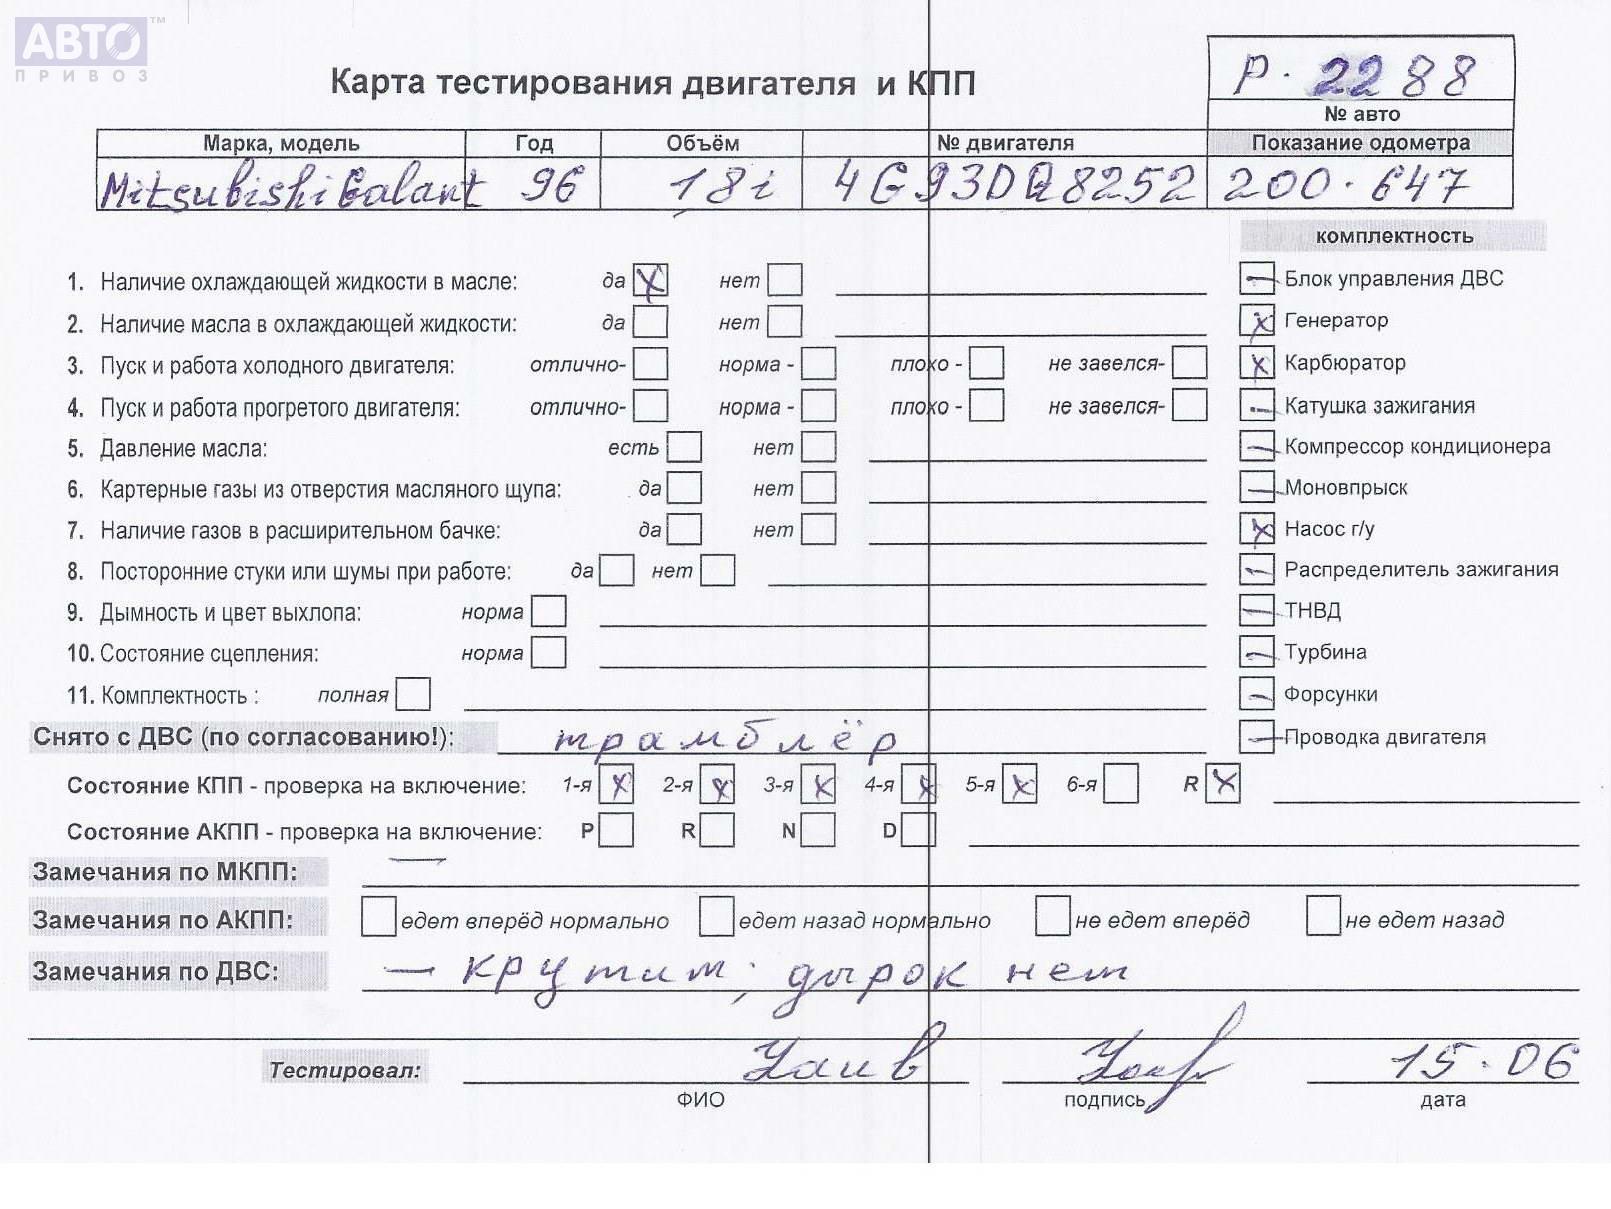 АВТО™
ПРИВОЗ
Карта тестирования двигателя и КПП
Р. 2288
№ авто
Марка, модель Год Объём № двигателя Показание одометра
Mitsubishi Galant 96 1,8i 4G93DQ8252 200.647
комплектность
1. Наличие охлаждающей жидкости в масле: да X нет
Блок управления ДВС
2. Наличие масла в охлаждающей жидкости: да нет
Генератор
3. Пуск и работа холодного двигателя: отлично- норма - плохо - не завелся-
Карбюратор
4. Пуск и работа прогретого двигателя: отлично- норма - плохо - не завелся-
Катушка зажигания
5. Давление масла: есть нет
Компрессор кондиционера
6. Картерные газы из отверстия масляного щупа: да нет
Моновпрыск
7. Наличие газов в расширительном бачке: да нет
Насос г/у
8. Посторонние стуки или шумы при работе: да нет
Распределитель зажигания
9. Дымность и цвет выхлопа: норма
ТНВД
10. Состояние сцепления: норма
Турбина
11. Комплектность : полная
Форсунки
Снято с ДВС (по согласованию!): трамблёр
Проводка двигателя
Состояние КПП - проверка на включение: 1-я X 2-я X 3-я X 4-я X 5-я X 6-я R X
Состояние АКПП - проверка на включение: P R N D
Замечания по МКПП: —
Замечания по АКПП: едет вперёд нормально едет назад нормально не едет вперёд не едет назад
Замечания по ДВС: — крутим; дырок нет
Тестировал: 15.06
ФИО подпись дата